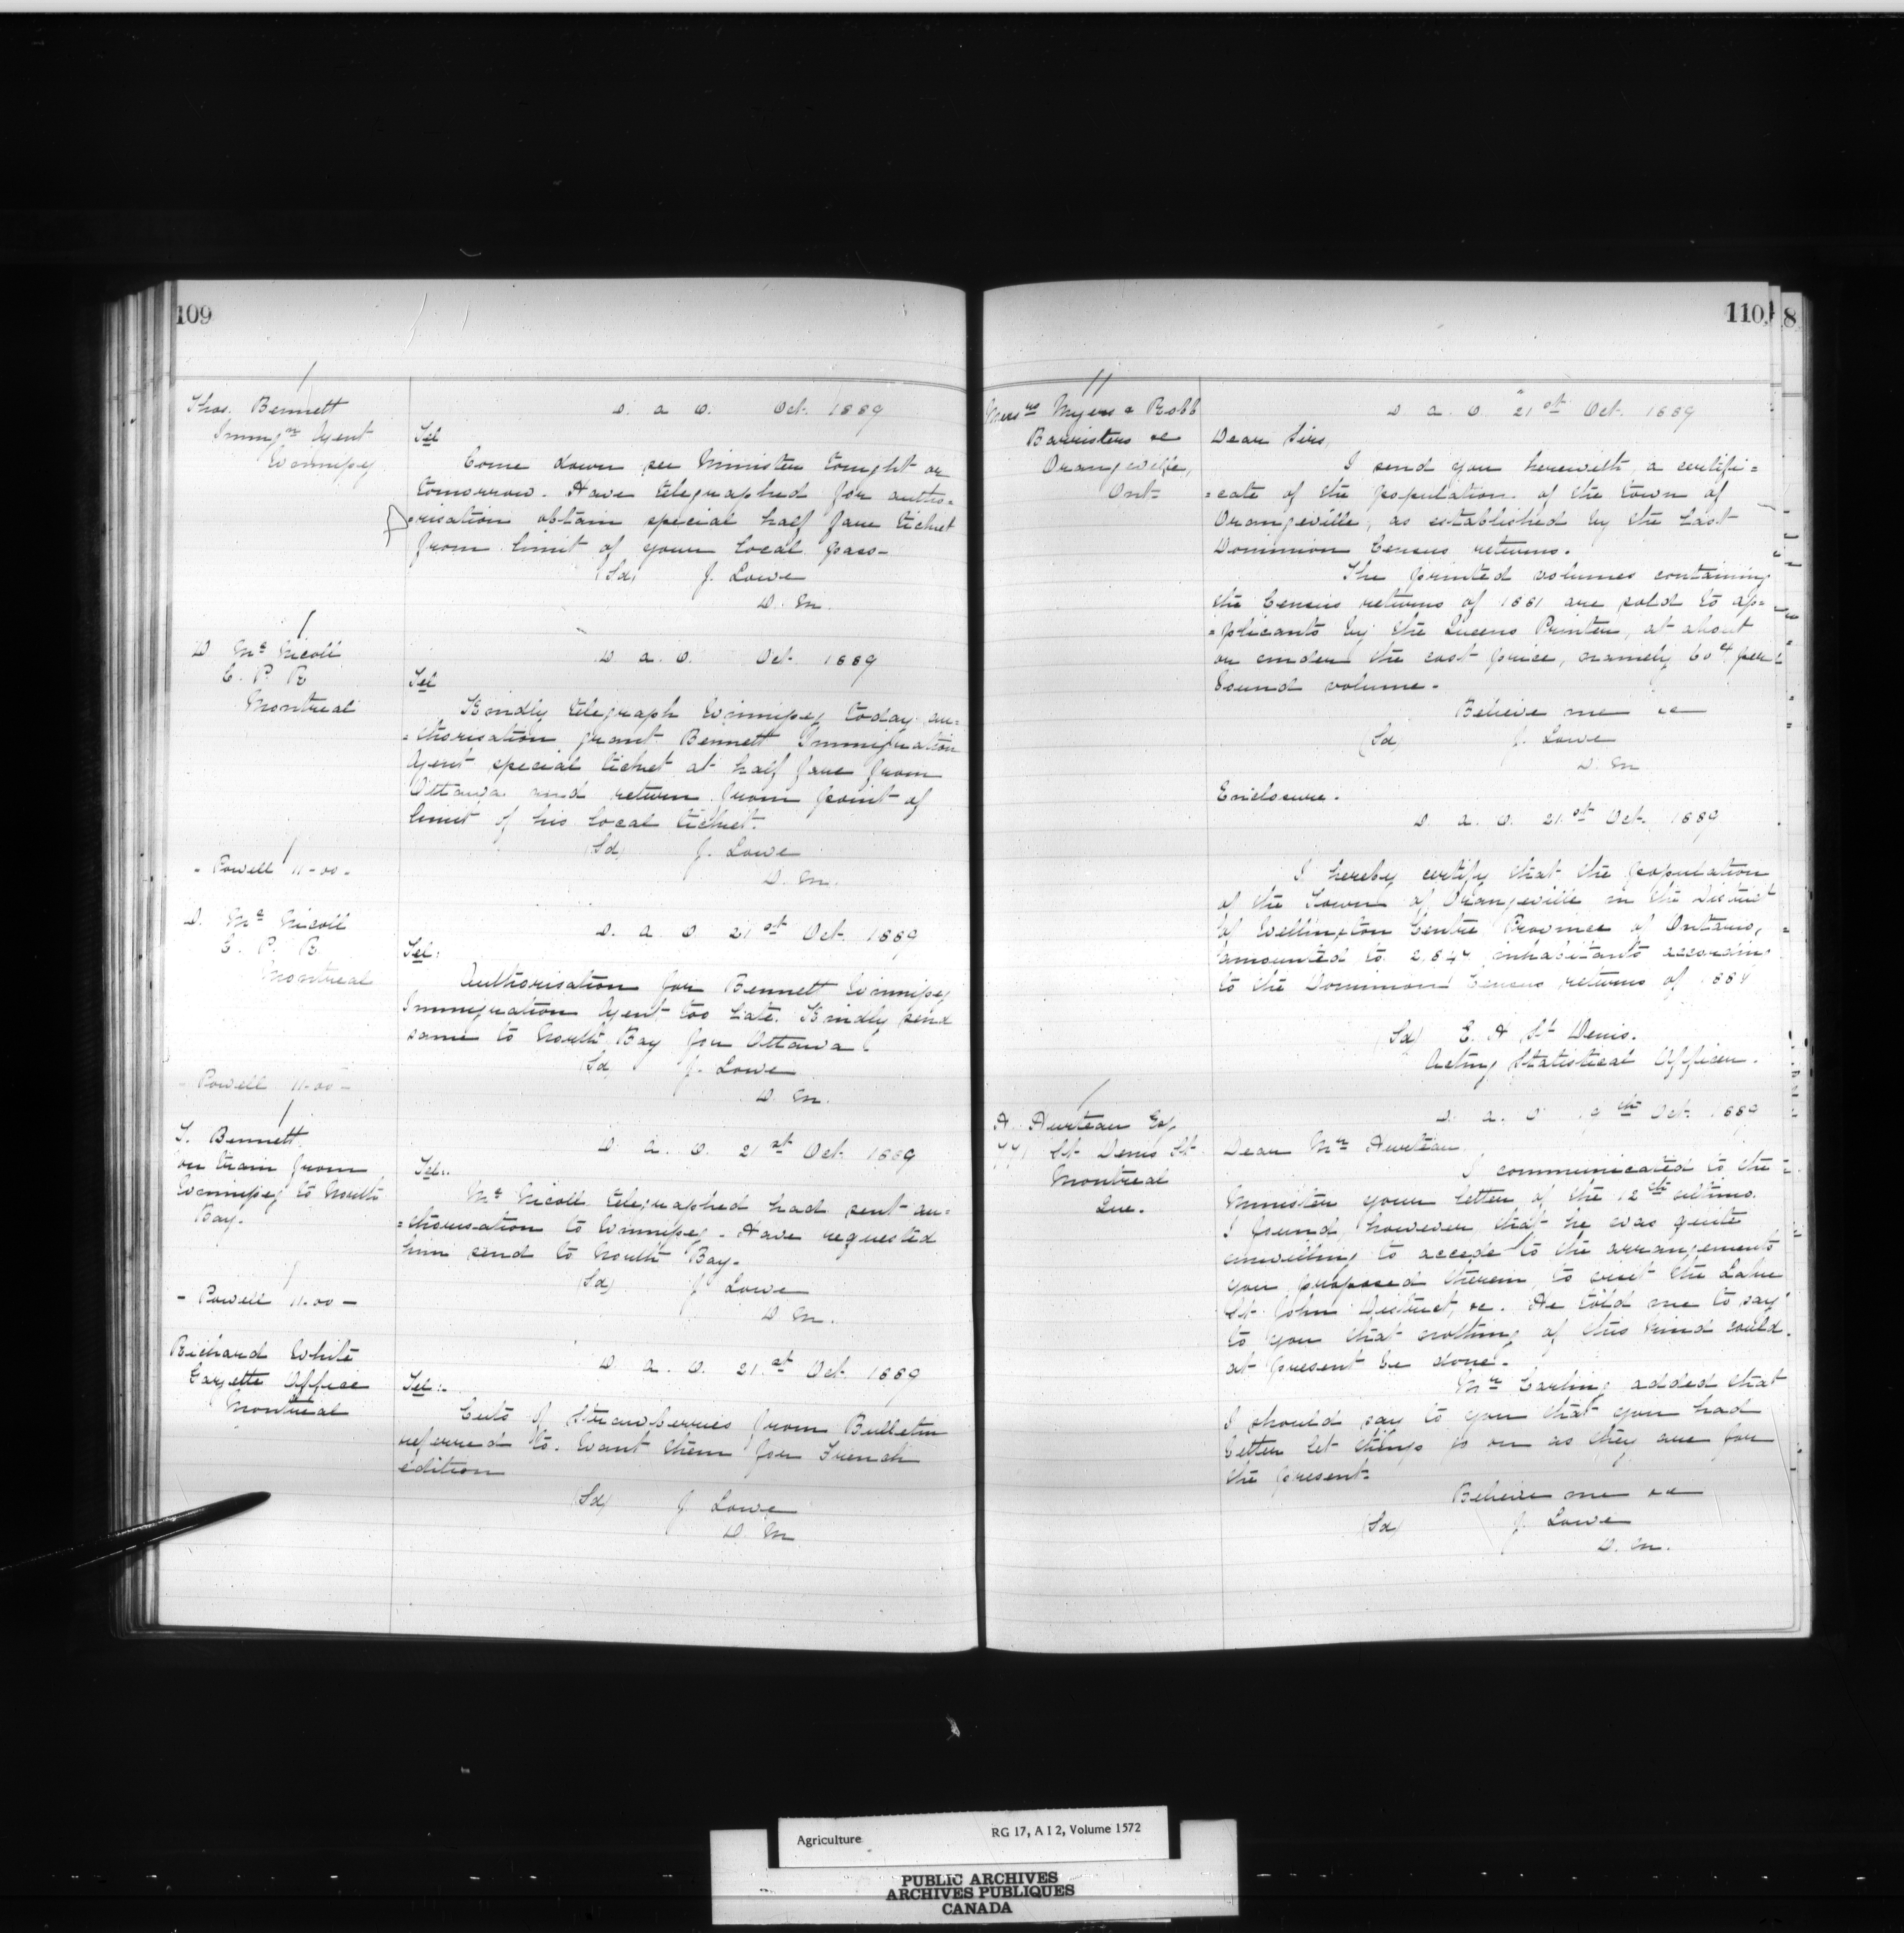 109
Thos. Bennett
Immign Agent
Winnipeg
D. a. O. Oct. 1889
Tel
Come down see Minister tonight or
tomorrow. Have telegraphed for autho-
=risation obtain special half fare ticket
from limit of your local pass-
(Sd) J. Lowe
D. M.
D. Mc Nicoll
C. P. R
Montreal
D. a. O. Oct. 1889
Tel
Kindly telegraph Winnipeg today au=
=thorisation grant Bennett Immigration
Agent special ticket at half fare from
Ottawa and return from point of
limit of his local ticket.
(Sd) J. Lowe
D. M.
- Powell 11-00 -
D. Mc Nicoll
C. P. R
Montreal
D. a. O. 21st Oct. 1889
Tel:
Authorisation for Bennett Winnipeg
Immigration Agent too late. Kindly send
same to North Bay for Ottawa
(Sd) J. Lowe
D. M.
- Powell 11-00 -
T. Bennett
on train from
Winnipeg to North
Bay.
D. a. O. 21st Oct. 1889
Tel:.
Mc Nicoll telegraphed had sent au=
=thorisation to Winnipeg. Have requested
him send to North Bay.
(Sd) J. Lowe
D. M.
- Powell 11-00 -
Richard White
Gazette Office
Montreal
D. a. O. 21.st Oct. 1889
Tel:.
Cuts of Strawberries from Bulletin
referred to. Want them for French
edition
(Sd) J. Lowe
D. M
110
8
Messrs Myers & Robb
Barristers &c
Orangeville,
Ont-
D. a. O. 21st Oct. 1889
Dear Sirs,
I send you herewith a certifi=
=cate of the population of the town of
Orangeville, as established by the Last
Dominion Census returns.
The printed volumes containing
the Census returns of 1881 are sold to ap=
=plicants by the Queens Printer, at about
or under the cost price, namely 60cts per
bound volume.
Believe me &c
(Sd) J. Lowe
D. M
Enclosure.
D. a. O. 21.st Oct. 1889
I hereby certify that the population
of the Town of Orangeville in the District
of Wellington Centre Province of Ontario,
amounted to 2.847 inhabitants according
to the Dominion Census returns of 188
(Sd) E. H St Denis.
Acting Statistical Officer.
A. Hurteau Esq.
St. Denis St
Montreal
Que.
D. a. O. 19th Oct. 1889
Dear Mr Hurteau
I communicated to the
Minister your letter of the 12th ultimo.
I found, however, that he was quite
unwilling to accede to the arrangements
you proposed therein, to visit the Lake
St. John District, &c. He told me to say
to you that nothing of this kind could
at present be done.
Mr Carling added that
I should say to you that you had
better let things go on as they are for
the present.
Believe me &c
(Sd) J. Lowe
D. M.
Agriculture RG 17, A I 2, Volume 1572
PUBLIC ARCHIVES
ARCHIVES PUBLIQUES
CANADA